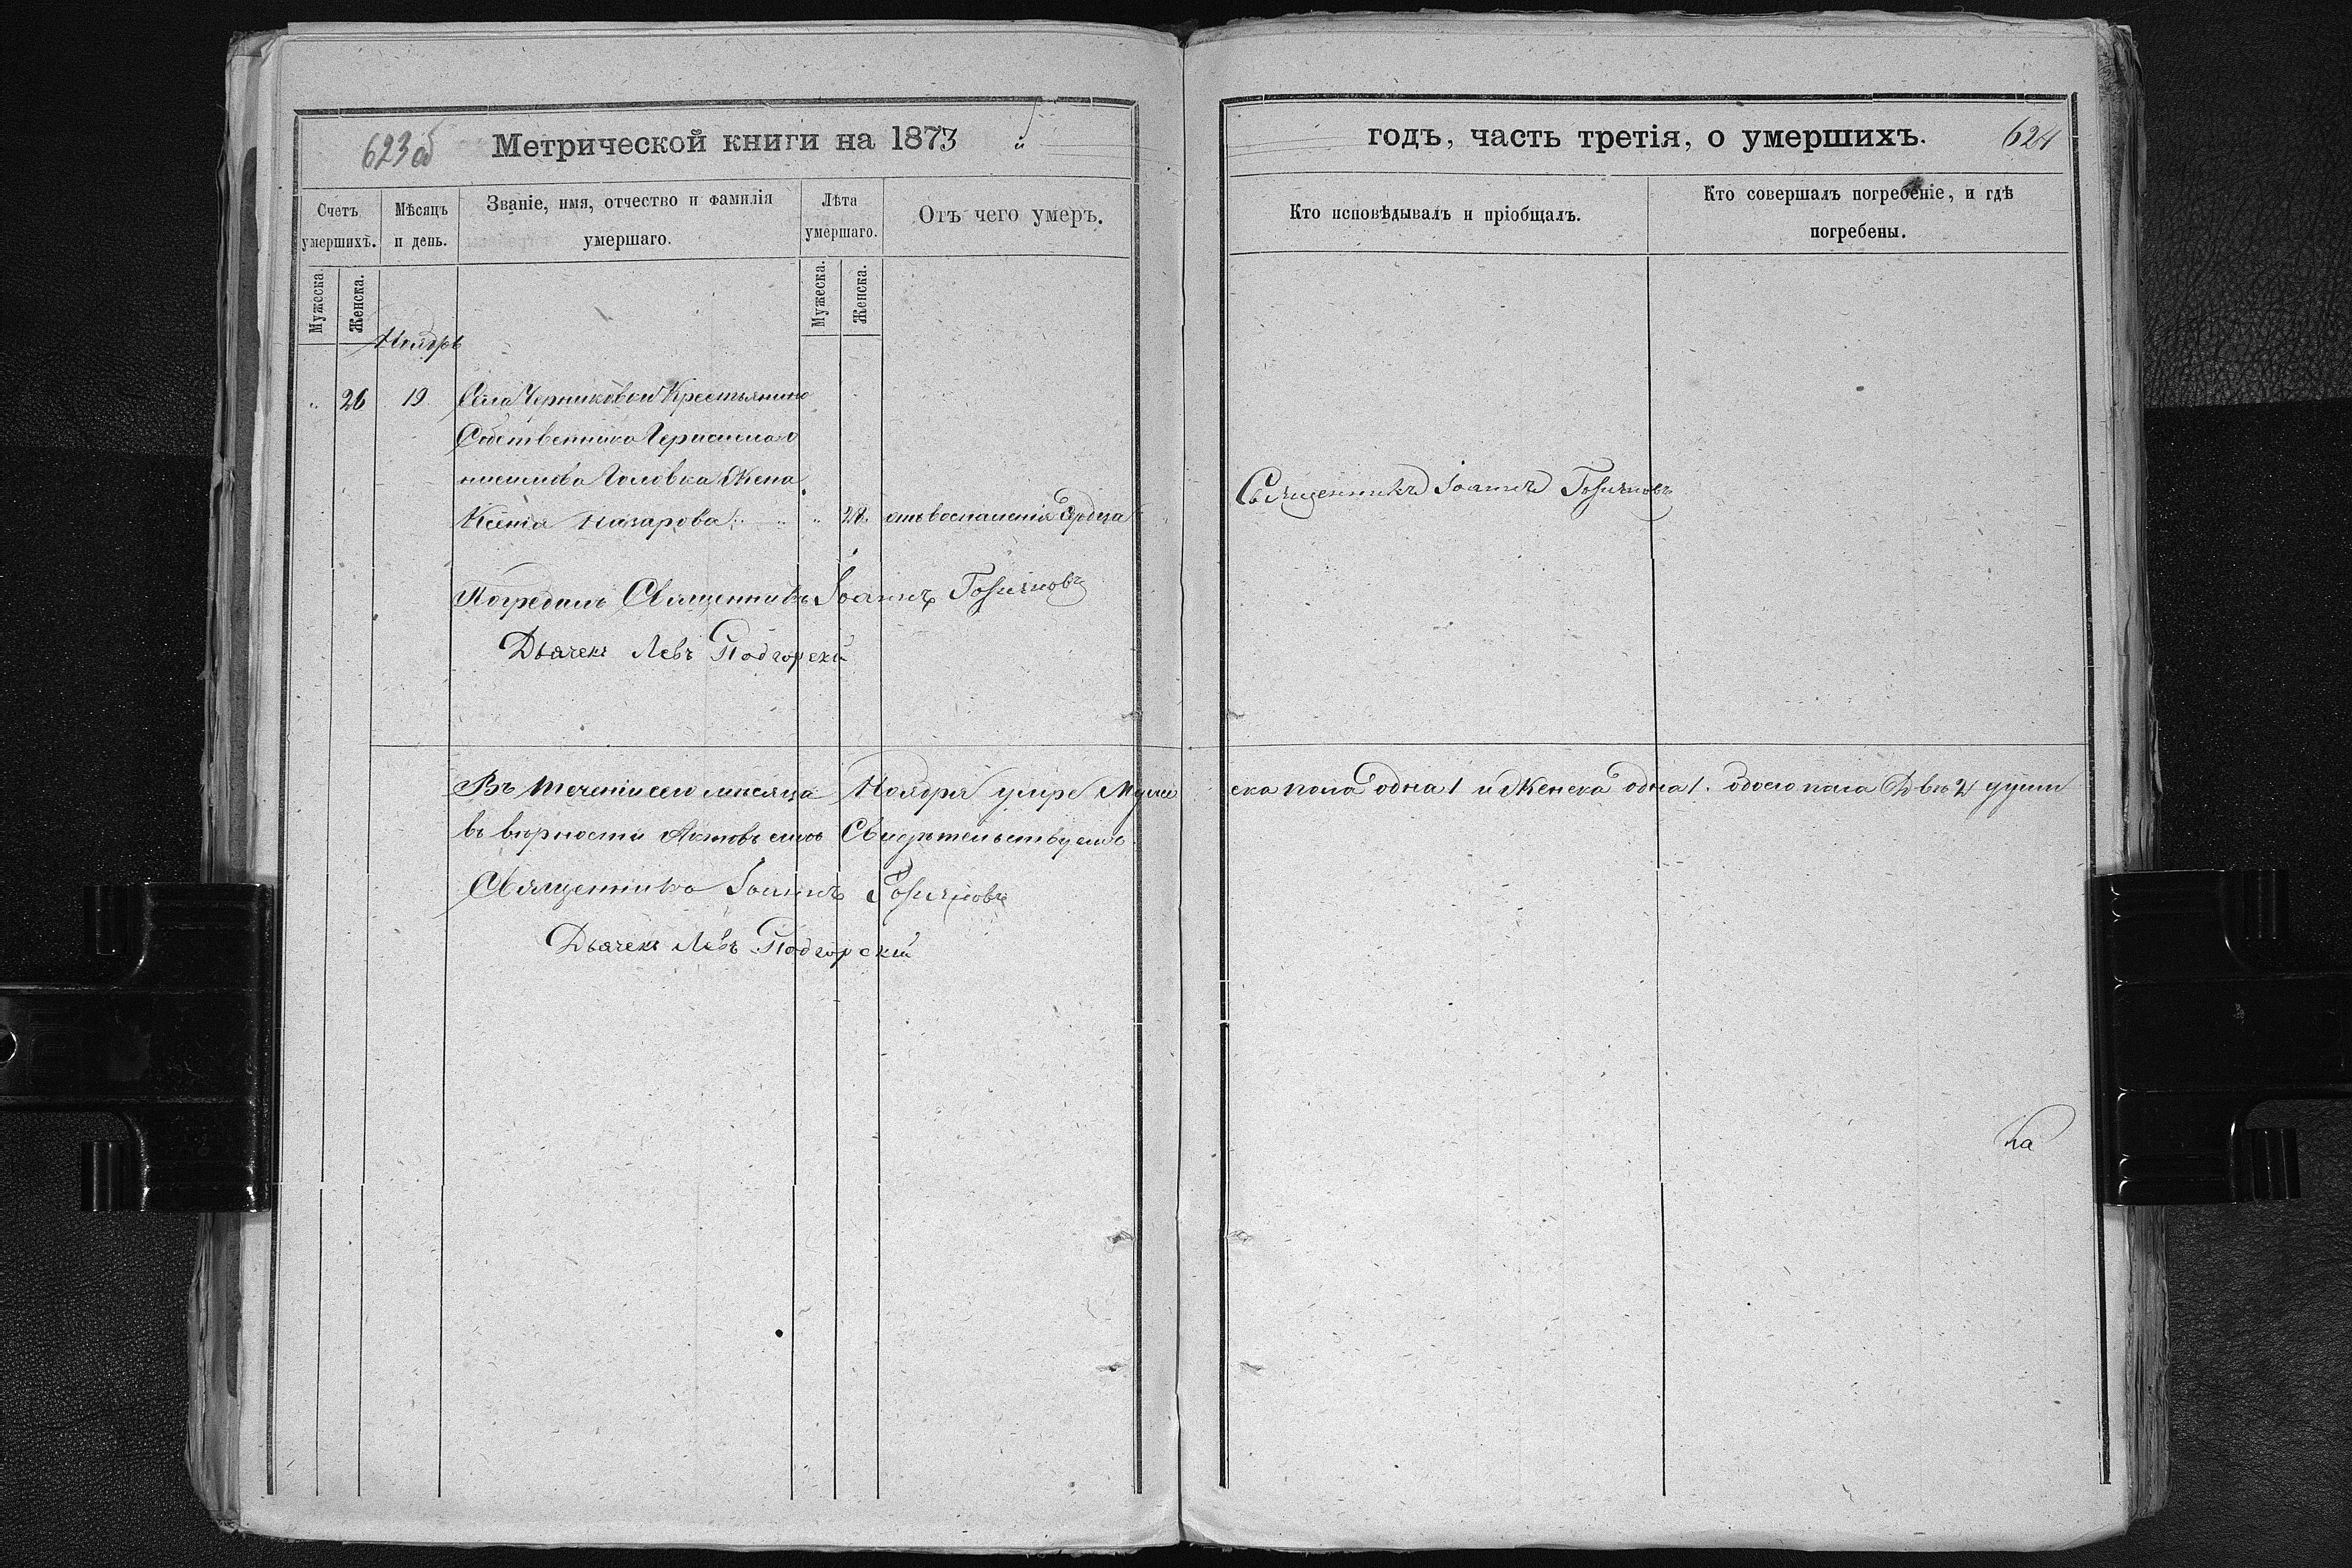 623об Метрической книги на 1873 й
Счетъ умершихъ.
Мужеска
Женска.
Мѣсяцъ и день.
Званіе, имя, отчество и фамилія
умершаго.
Лѣта умершаго.
Мужеска.
Женска.
Отъ чего умеръ.
Ноябрь
26 19 Села Черниковой Крестьянина
Собственника
Головка Жена
Ксенія Назарова 28. отъ воспаленія Сердца
Погребалъ Священникъ Іоаннъ
Дьячекъ Левъ Подгорскій
Въ теченіи сего мѣсяца Ноября умре Муже
въ вѣрности Актовъ симъ Свидѣтельствуемъ
Священникъ Іоаннъ
Дьячекъ Левъ Подгорскій
годъ, часть третія, о умершихъ. 624
Кто исповѣдывалъ и пріобщалъ.
Кто совершалъ погребеніе, и гдѣ
погребены.
Священникъ Іоаннъ
ска пола одна 1 и Женска одна 1. обоего пола Двѣ 2 души
на